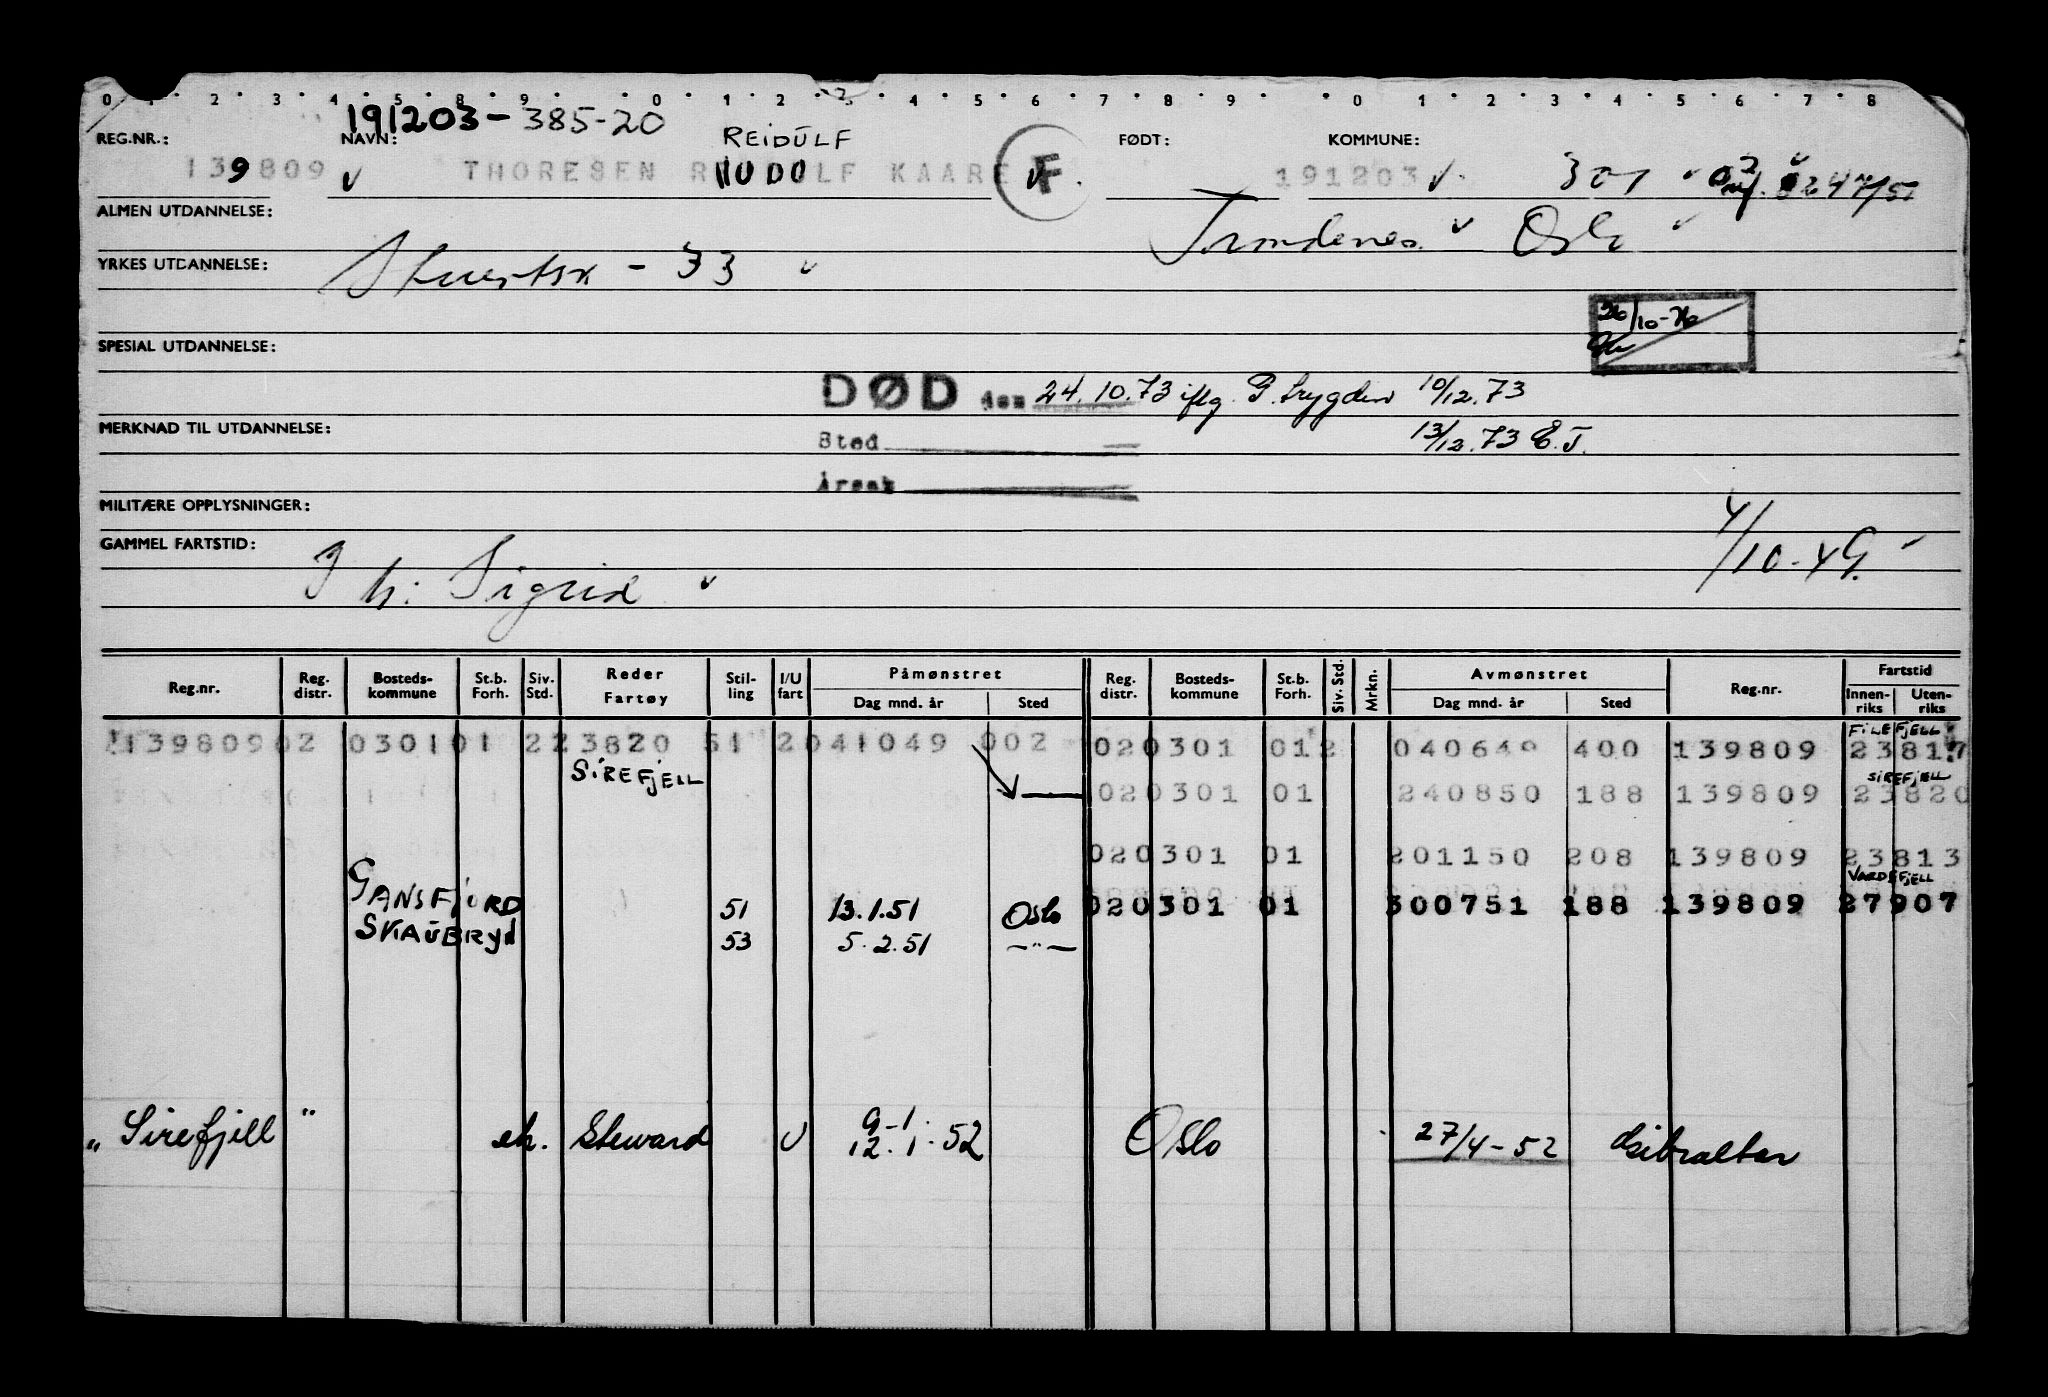 0 1 2 3 4 5 6 8 9 0 1 2 3 4 5 6 7 8 9 0 1 2 3 4 5 6 7 8
191203-385-20
REIDULF
REG.NR.: NAVN: FØDT: KOMMUNE:
139809 THORESEN RUDOLF KAARE F 191203 301
ALMEN UTDANNELSE: Trondenes Oslo
YRKES UTDANNELSE: - 33
26/10-76
SPESIAL UTDANNELSE:
DØD den 24.10.73 iflg. G. trygden 10/12.73
MERKNAD TIL UTDANNELSE: Sted 13/12.73 E.T.
Årsak
MILITÆRE OPPLYSNINGER:
GAMMEL FARTSTID: 4/10-49
h: Sigrid
Reg.nr. Reg. distr. Bosteds-kommune St.b. Forh. Siv. Std. Reder Fartøy Stil-ling I/U fart Påmønstret Dag mnd. år Sted Reg. distr. Bosteds-kommune St.b. Forh. Siv. Std. Mrkn. Avmønstret Dag mnd. år Sted Reg.nr. Fartstid Innen-riks Uten-riks
FILEFJELL
139809 02 0301 01 2 23820 51 2 041049 002 02 0301 01 2 040649 400 139809 23817
SIREFJELL SIREFJELL
02 0301 01 240850 188 139809 23820
02 0301 01 201150 208 139809 23813
VARDEFJELL
GANSFJORD 51 13.1.51 Oslo 02 0301 01 300751 188 139809 27907
SKAUBRYN 53 5.2.51 -"-
9-1
"Sirefjell" ek. Steward U 12.1.52 Oslo 27/4-52 Gibraltar